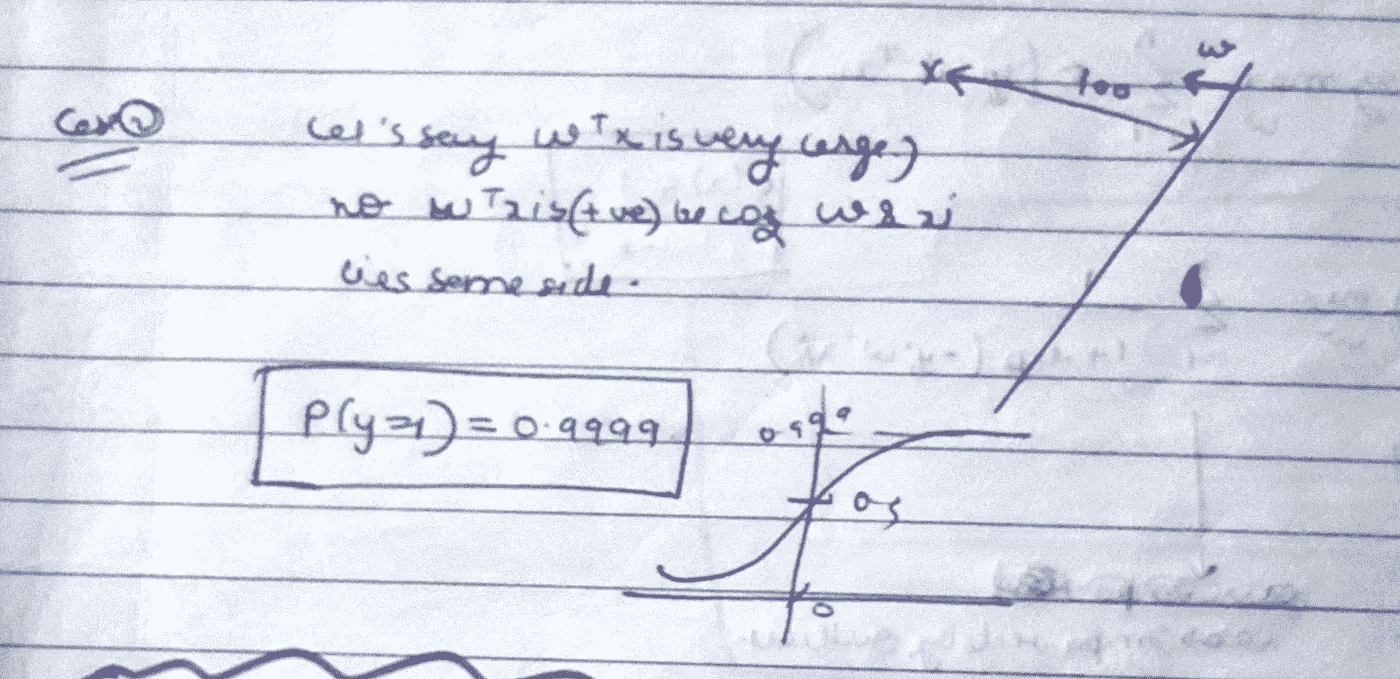 w
x 100
Case ②
Let's say wᵀx is very large,
no wᵀxi is (+ve) becoz w & xi
lies same side.
P(y=1) = 0.9999
0.999
0.5
0